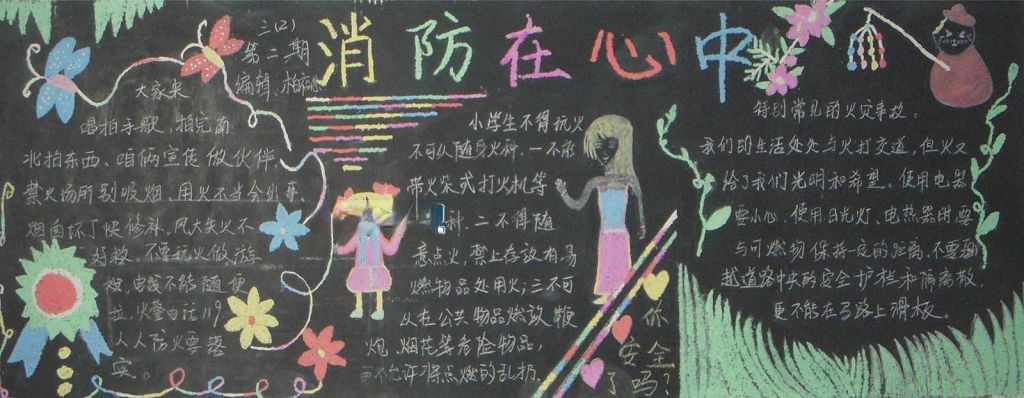 消防在心中
三(2)
第二期
编辑:柏
大家来
唱拍手歌,拍完南
北拍东西、咱俩宣传做伙伴,
禁火场所别吸烟,用火不当会出事,
烟囱坏了快修补,风大失火不
好救,不要玩火做游
戏,电线不能随便
拉,火警电话119
人人防火要落
实。
小学生不得玩火
不可以随身火种,一不能
带火柴式打火机等
种,二不得随
意点火,禁止存放有易
燃物品处用火;三不可
以在公共物品燃放鞭
炮,烟花等危险物品,
更不允许将点燃的乱扔
你
安全
了吗?
特别常见的火灾事故:
我们的生活处处与火打交道,但火又
给了我们光明和希望。使用电器
要小心。使用日光灯、电热器时要
与可燃物保持一定的距离,不要翻
越道路中央的安全护栏和隔离墩,
更不能在马路上滑板。